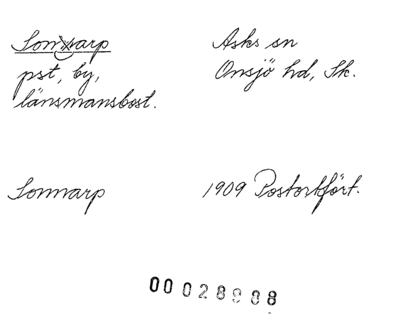 Sonnarp Asks sn
pst, by, Onsjö hd, Sk.
länsmansbost.
Sonnarp 1909 Postortsfört.